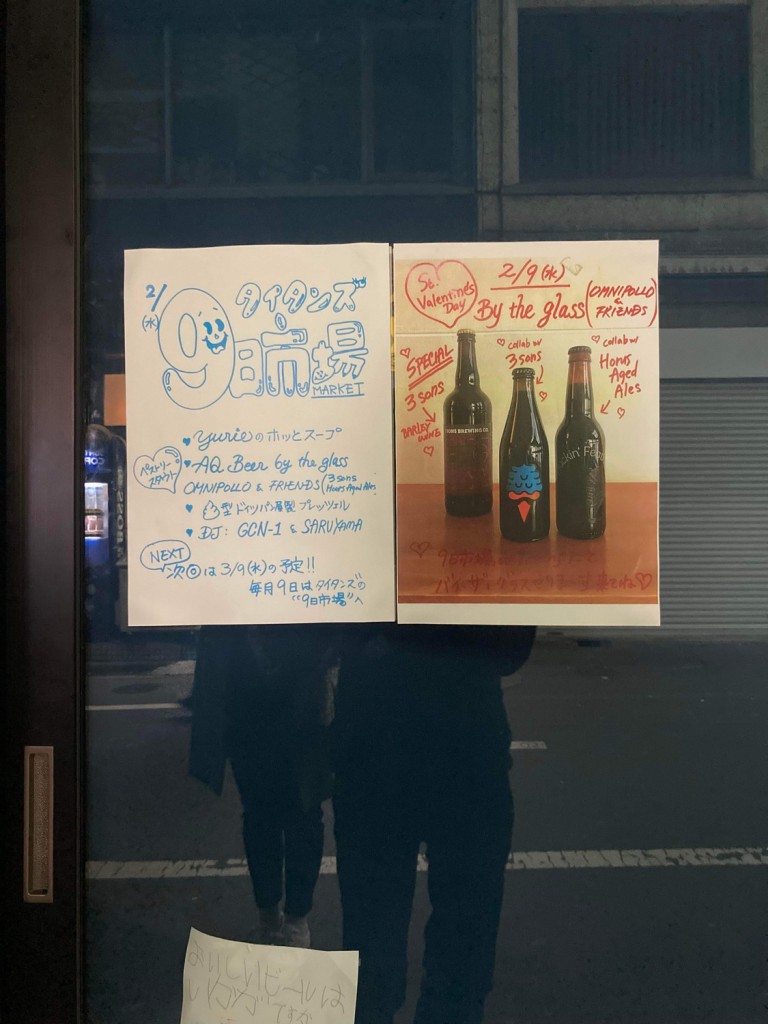 2/9(水)
タイタンズ
9日市場
MARKET
Yurieのホッとスープ
ペストリー
スタウト
AQ Beer by the glass
OMNIPOLLO & FRIENDS (3 sons
Horus Aged Ales)
型ドイツパン屋製プレッツェル
DJ: GCN-1 & SARUYAMA
NEXT
次回は3/9(水)の予定!!
毎月9日はタイタンズの
"9日市場"へ
St.
Valentine's
Day
2/9(水)
By the glass
(OMNIPOLLO
&
FRIENDS)
SPECIAL
3 sons
BARLEY WINE
collab w
3 sons
collab w
Horus
Aged
Ales
SONS BREWING CO.
9日市場
バイザグラス
ビールは
いかがですか